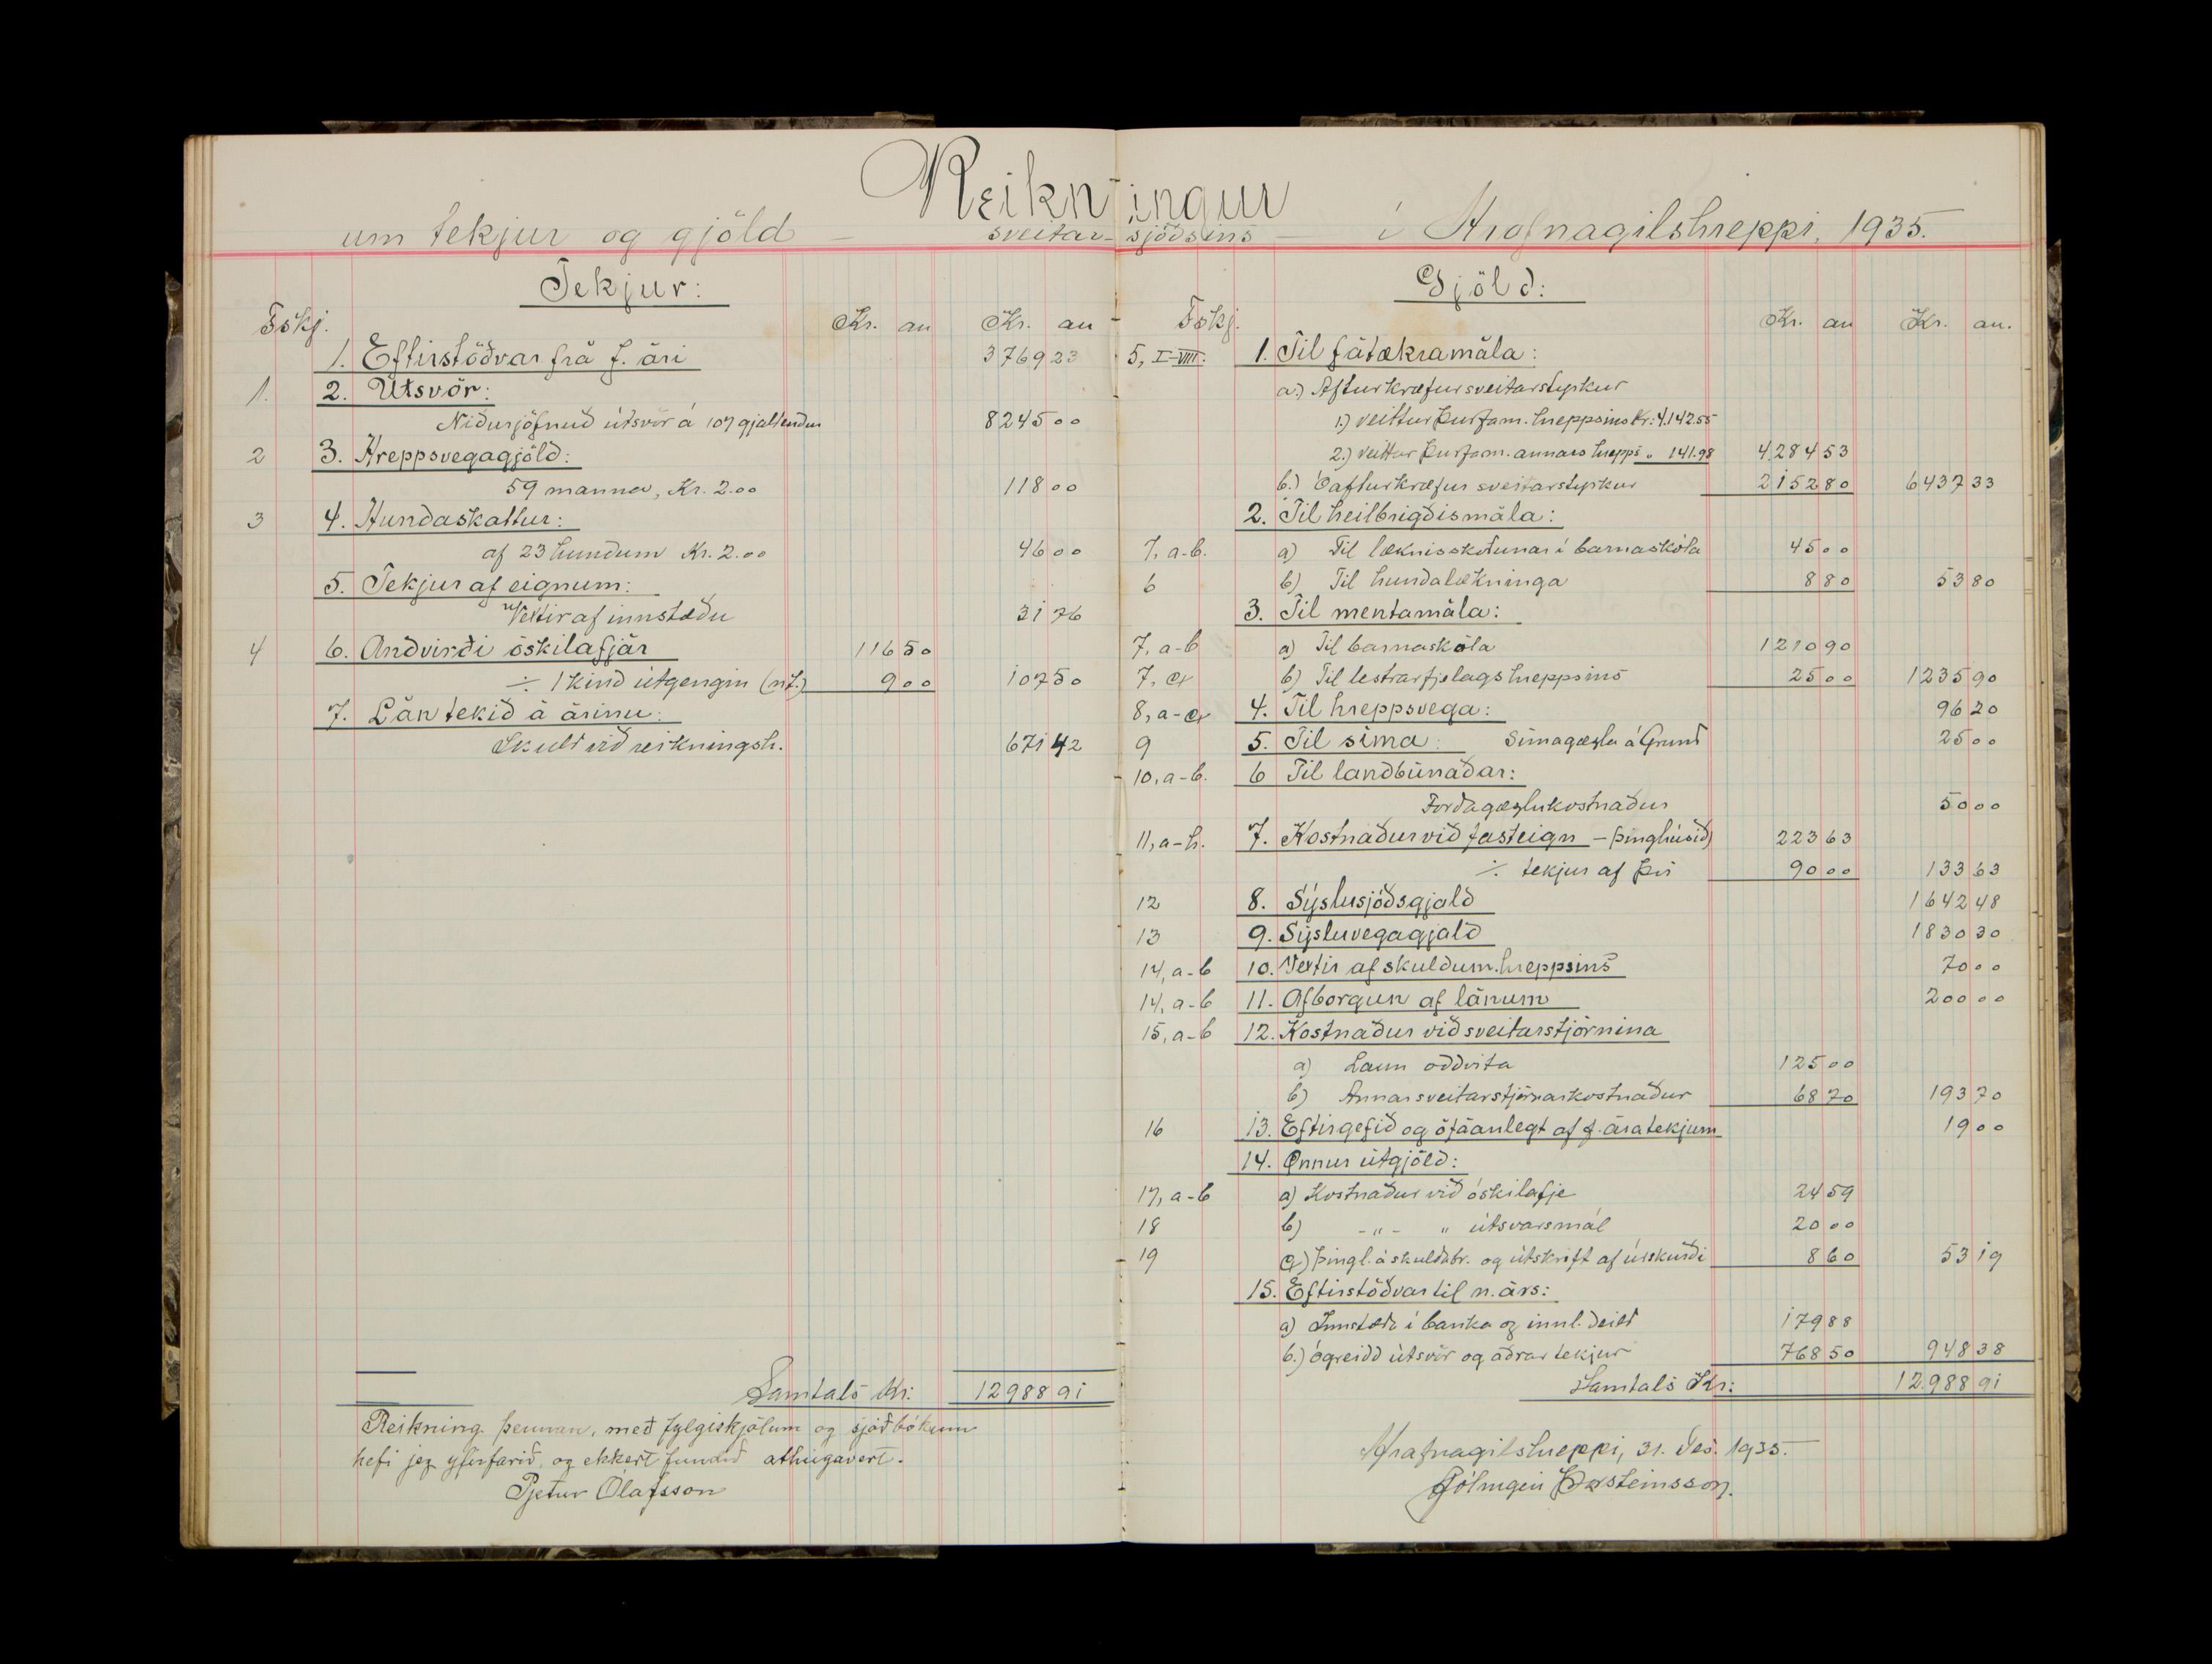 Reikningur
um tekjur og gjöld – sveitar-sjóðsins – í Hrafnagilshreppi, 1935.
Tekjur:
Fskj. Kr. au Kr. au
1. Eftirstöðvar frá f. ári 3769 23
1. 2. Útsvör:
Niðurjöfnuð útsvör á 107 gjaldendur 8245 00
2 3. Hreppsvegagjöld:
59 manna, Kr. 2.00 118 00
3 4. Hundaskattur:
af 23 hundum Kr. 2.00 46 00
5. Tekjur af eignum:
Vextir af innstæðu 31 76
4 6. Andvirði óskilafjár 116 50
÷ 1 kind útgengin 9 00 107 50
7. Lán tekið á árinu:
Skuld við reikningsh. 671 42
Samtals Kr: 12988 91
Reikning þennan, með fylgiskjölum og sjóðbókum
hefi jeg yfirfarið, og ekkert fundið athugavert.
Pjetur Ólafsson
Gjöld:
Fskj. Kr. au Kr. au.
5, I-VIII. 1. Til fátækramála:
a.) Afturkræfur sveitarstyrkur
1.) veittur þurfam. hreppsins Kr: 4.142.55
2.) veittur þurfam. annars hrepps " 141.98 4.284 53
b.) Óafturkræfur sveitarstyrkur 2152 80 6437 33
2. Til heilbrigðismála:
7, a-b. a) Til læknisskoðunar í barnaskóla 45 00
6 b) Til hundalækninga 8 80 53 80
3. Til mentamála:
7, a-b a) Til barnaskóla 1210 90
7, c b) Til lestrarfjelags hreppsins 25 00 1235 90
8, a-c 4. Til hreppsvega: 96 20
9 5. Til síma: Símagæsla á Grund 25 00
10, a-b. 6 Til landbúnaðar:
Forðagæslukostnaður 50 00
11, a-h. 7. Kostnaður við fasteign – (þinghúsið) 223 63
÷ tekjur af því 90 00 133 63
12 8. Sýslusjóðsgjald 1642 48
13 9. Sýsluvegagjald 1830 30
14, a-b 10. Vextir af skuldum hreppsins 70 00
14, a-b 11. Afborgun af lánum 200 00
15, a-b 12. Kostnaður við sveitarstjórnina
a) Laun oddvita 125 00
b) Annar sveitarstjórnarkostnaður 68 70 193 70
16 13. Eftirgefið og ófáanlegt af f. ára tekjum 19 00
14. Önnur útgjöld:
17, a-b a) Kostnaður við óskilafje 24 59
18 b) -"- " útsvarsmál 20 00
19 c) Þingl. á skuldabr. og útskrift af úrskurði 8 60 53 19
15. Eftirstöðvar til n. árs:
a) Innstæða í banka og innl. deild 179 88
b.) ógreidd útsvör og aðrar tekjur 768 50 948 38
Samtals Kr: 12.988 91
Hrafnagilshreppi, 31. Des. 1935.
Hólmgeir Þorsteinsson.